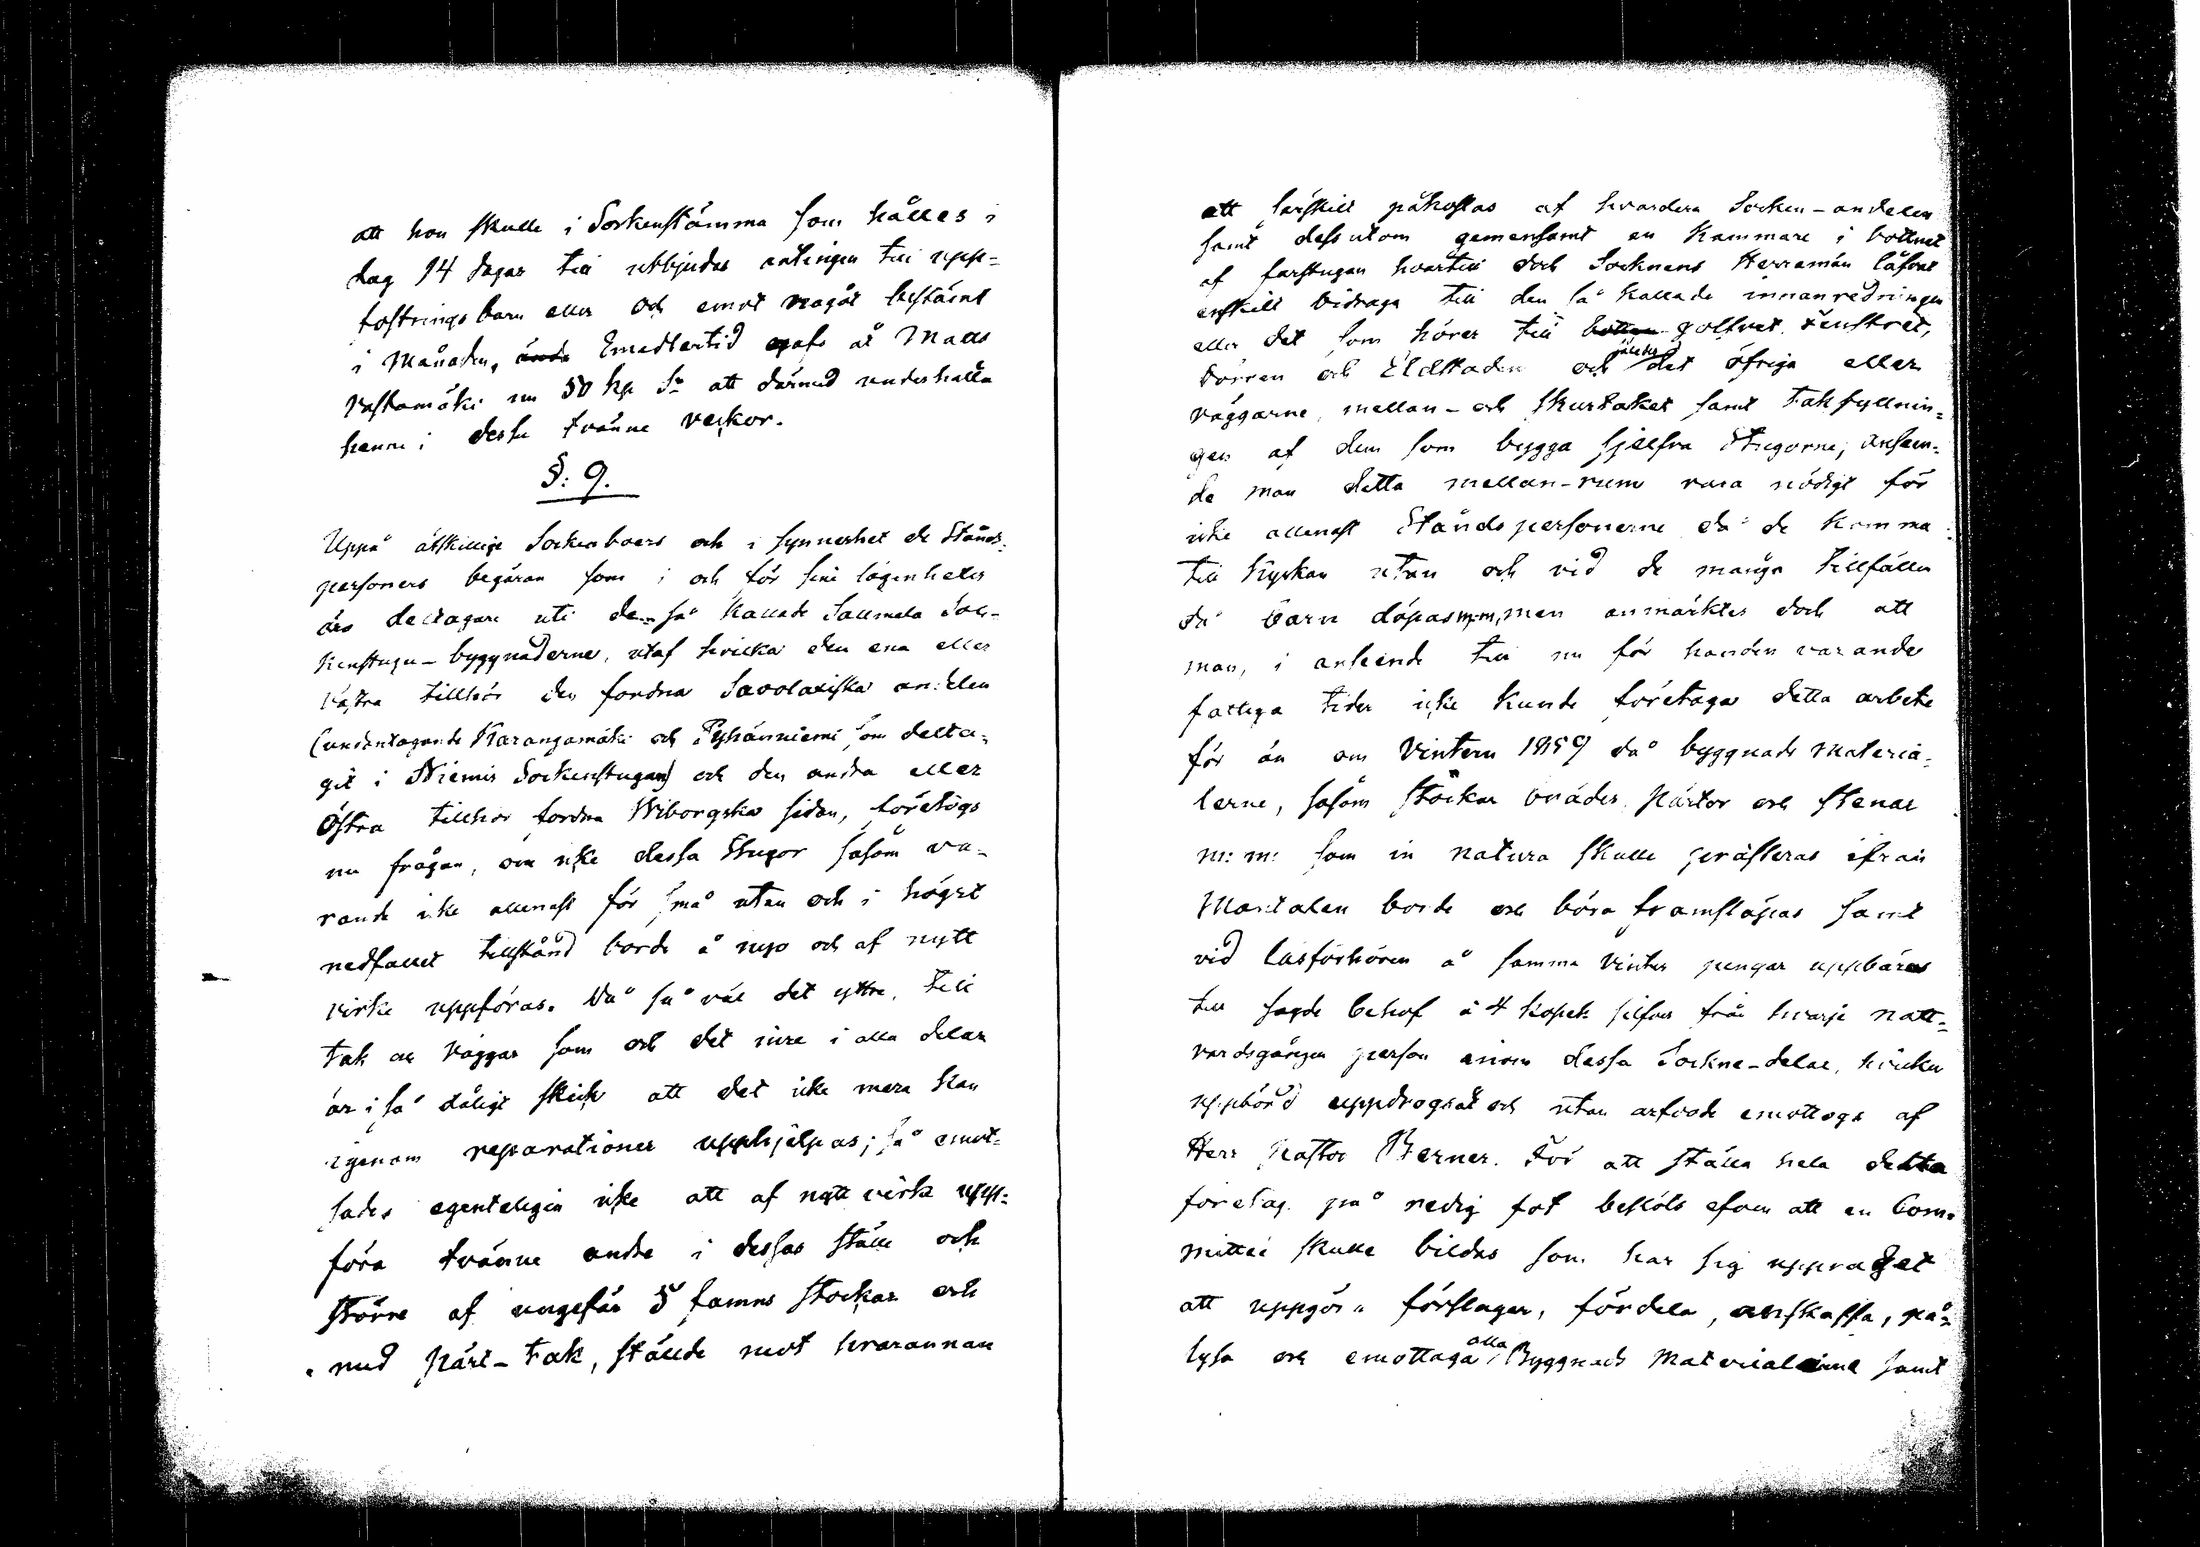 att hon skulle i Sockenstämma som hålles i
dag 14 dagar till utbjudas antingen till upp=
fostrings barn eller och emot något bestämt
i Månaden, Emedlertid gafs åt Matts
Wastamäki nu 50 kp Sr att därmed underhålla
henne i dessa tvänne veckor.
§: 9.
Uppå åtskillige Sockenboers och i synnerhet de Stånds=
personers begäran som i och för sine lägenheter
äro deltagare uti den så kallade Sallmela Soc-
kenstugu-byggnaderne, utaf hvilka den ena eller
Västra tillhör den fordna Savolaxiska andelen
(undantagande Karangamäki och Pyhänniemi som delta=
git i Niemis Sockenstugan) och den andra eller
Östra tillhör fordna Wiborgska sidan, företogs
nu frågan, om icke dessa Stugor såsom va-
rande icke allenast för små utan och i högst
nedfallet tillstånd borde å nyo och af nytt
virke uppföras. Då så väl det yttre, till
tak och väggar som och det inre i alla delar
är i så dåligt skick att det icke mera kan
igenom reparationer upphjelpas; så emot=
sades egenteligen icke att af nytt virke upp=
föra tvänne andra i dessas ställe och
större af ungefär 5 famns stockar och
med Pärt-tak, stälde mot hvarannan
att särskilt påkostas af hvardera Socken-andelen
samt dessutom gemensamt en Kammare i bottnet
af farstugan hvartill dock Socknens Herremän låfvat
enskilt bidraga till den så kallade innanredningen
eller det som hörer till golfvet, fenstret,
dörren och Eldstaden och det öfriga eller
väggarne, mellan- och skurtaket samt takfyllnin=
gen af dem som bygga sjelfva Stugorne; anseen=
de man detta mellan-rum vara nödigt för
icke allenast Ståndspersonerne då de komma
till Kyrkan utan och vid de många tillfällen
då barn döpas m.m., men anmärktes dock att
man, i anseende till nu för handen varande
fattiga tider icke kunde företaga detta arbete
för än om Vintern 1859 då byggnads materia=
lerne, såsom stockar bräder, Pärtor och stenar
m: m: som in natura skulle præsteras ifrån
Mantalen borde och böra framsläpas samt
vid läsförhören å samma Vinter pengar uppbäras
till sagde behof à 4 Kopek silfver från hvarje natt=
vardsgången person inom dessa Sockne-delar, hvilken
uppbörd uppdrogs åt och utan arfvode emottogs af
Herr Pastor Berner. För att ställa hela detta
företag på redig fot beslöts äfven att en Com=
mittée skulle bildas som har sig uppdraget
att uppgöra förslager, fördela, anskaffa, på=
lysa och emottaga alla Byggnads Materialerne samt